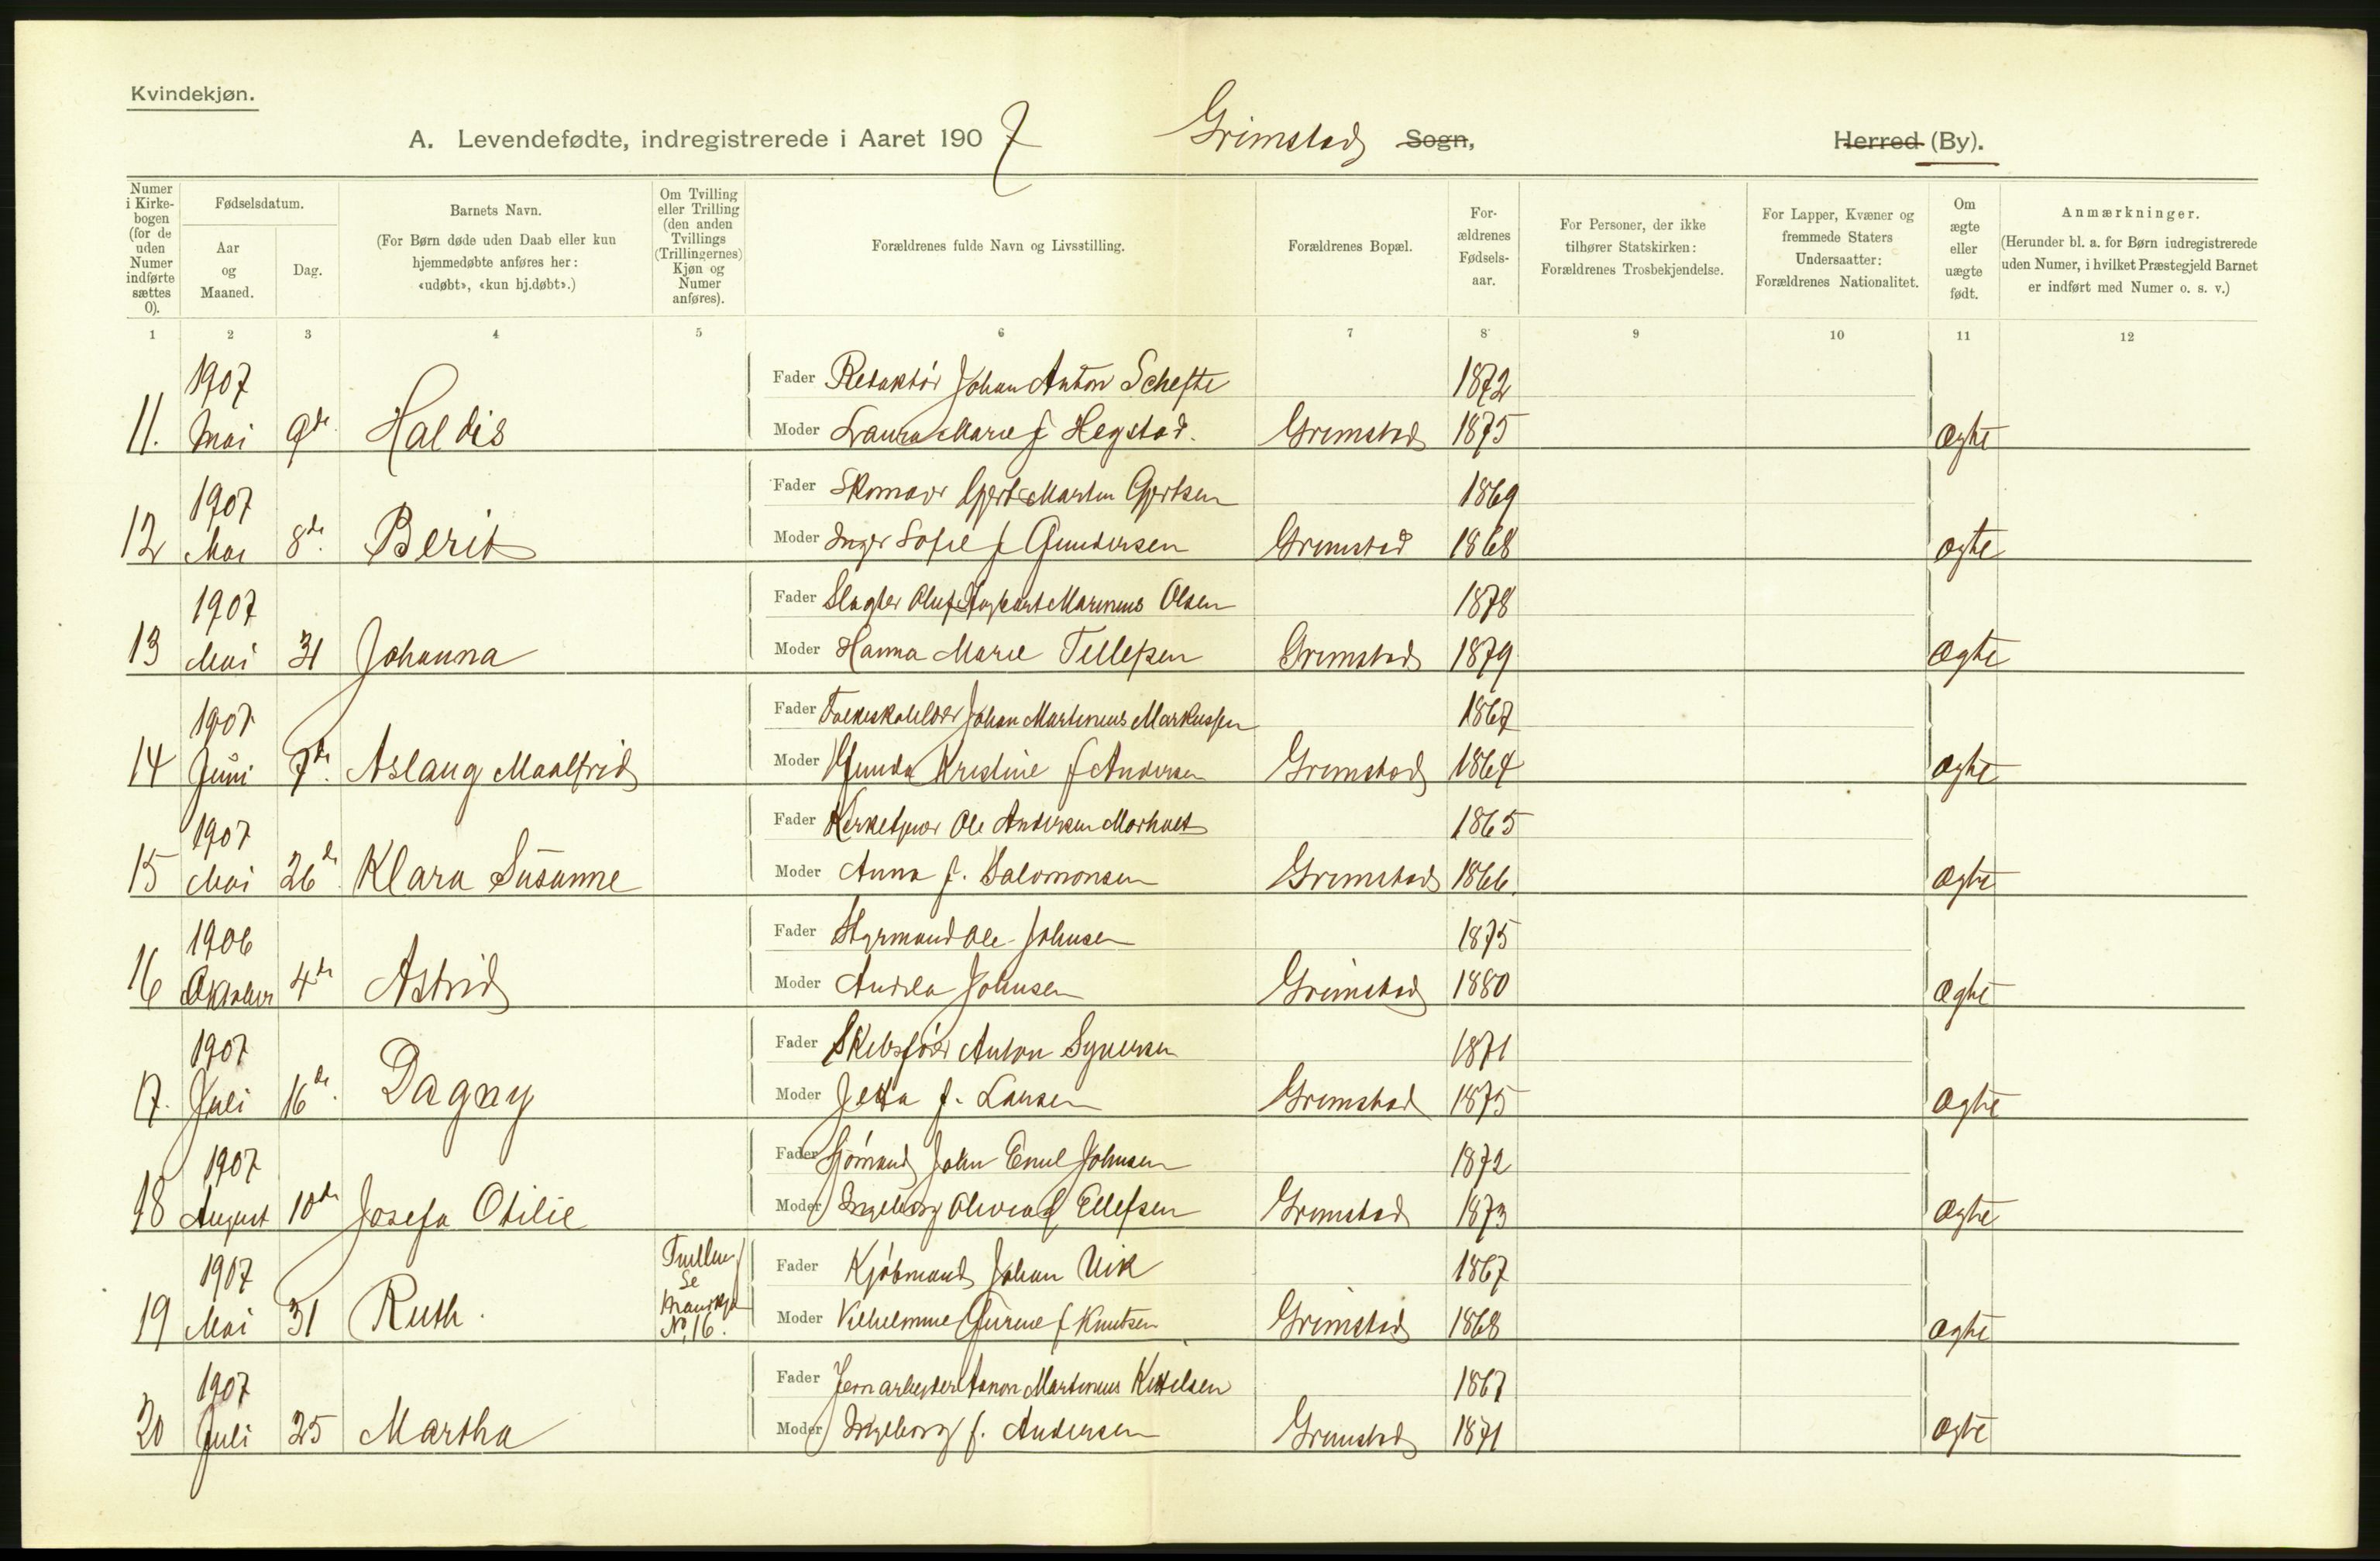 Kvindekjøn.
A. Levendefødte, indregistrerede i Aaret 1907 Grimstad Sogn, Herred (By).
Numer i Kirkebogen (for de uden Numer indførte sættes 0).
Fødselsdatum.
Aar og Maaned.
Dag.
Barnets Navn.
(For Børn døde uden Daab eller kun hjemmedøbte anføres her: «udøbt», «kun hj.døbt».)
Om Tvilling eller Trilling (den anden Tvillings (Trillingernes) Kjøn og Numer anføres).
Forældrenes fulde Navn og Livsstilling.
Forældrenes Bopæl.
For-ældrenes Fødsels-aar.
For Personer, der ikke tilhører Statskirken: Forældrenes Trosbekjendelse.
For Lapper, Kvæner og fremmede Staters Undersaatter: Forældrenes Nationalitet.
Om ægte eller uægte født.
Anmærkninger.
(Herunder bl. a. for Børn indregistrerede uden Numer, i hvilket Præstegjeld Barnet er indført med Numer o. s. v.)
1 2 3 4 5 6 7 8 9 10 11 12
1907 Fader Redaktør Johan Anton Schefte 1872
11. Mai 9de Haldis Moder Laura Marie f Hegstad. Grimstad 1875 ægte
1907 Fader Skomager Gjert Martin Gjertsen 1869
12 Mai 8de. Berit Moder Inger Sofie f Gundersen Grimstad 1868 ægte
1907 Fader Slagter Oluf Marinius Olsen 1878
13 Mai 31 Johanna Moder Hanna Marie Tellefsen Grimstad 1879 ægte
1907 Fader Johan Martinius Markussen 1867
14 Juni 7de. Aslaug Maalfrid Moder Gunda Kristine f Andersen Grimstad 1864 ægte
1907 Fader Ole Andersen Morholt 1865
15 Mai 26de. Klara Susanne Moder Anna f. Salomonsen Grimstad 1866. ægte
1906 Fader Styrmand Ole Johnsen 1875
16 Oktober 4de Astrid Moder Andrea Johnsen Grimstad 1880 ægte
1907 Fader Skibsfører Anton Syversen 1871
17. Juli 16de. Dagny Moder f. Larsen Grimstad 1875 ægte
1907 Fader Sjømand John Emil Johnsen 1872
18 August 10de Josefa Otilie Moder Ingeborg Olivia f Ellefsen Grimstad 1873 ægte
1907 Tvilling Se Mandkjøn No 16. Fader Kjøbmand Johan Vik 1867
19 Mai 31 Ruth. Moder Vilhelmine f Knutsen Grimstad 1868 ægte
1907 Fader Jernarbeider Martinius Kittelsen 1867
20 Juli 25 Martha Moder Ingeborg f. Andersen Grimstad 1871 ægte